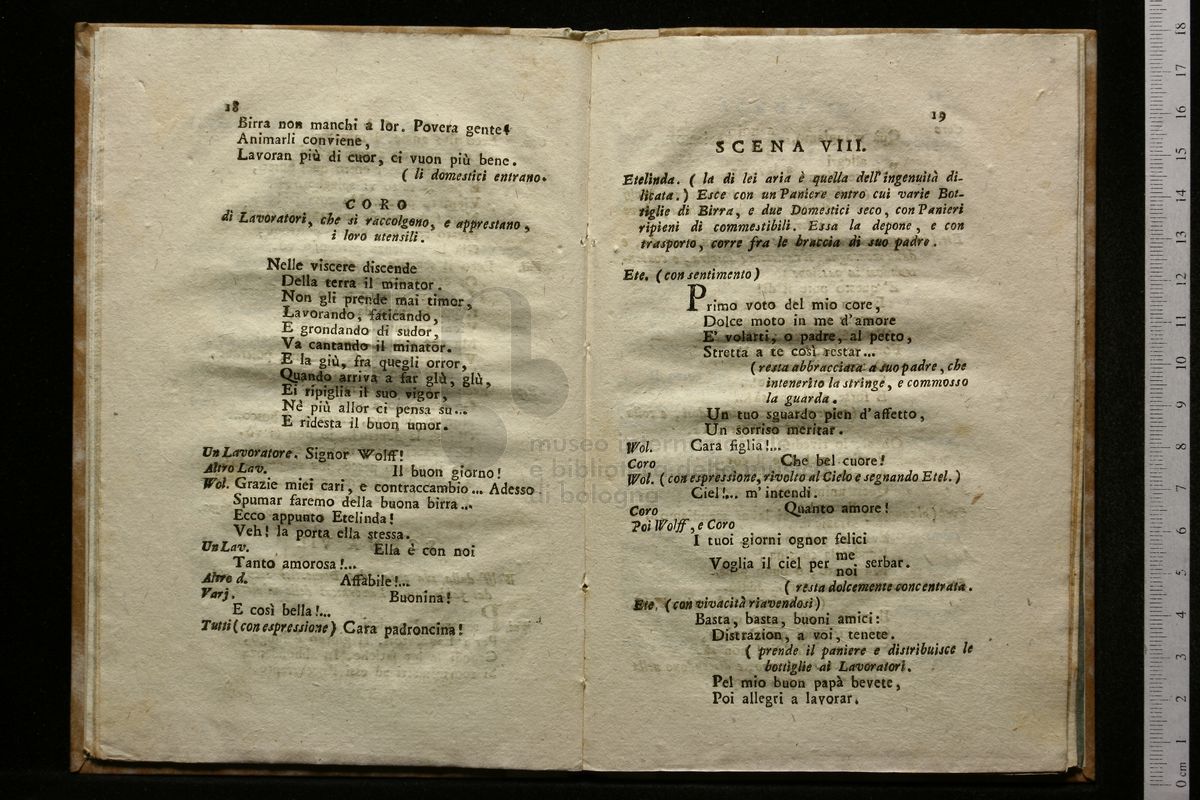 18
Birra non manchi a lor. Povera gente!
Animarli conviene,
Lavoran più di cuor, ci vuon più bene.
( li domestici entrano.
CORO
di Lavoratori, che si raccolgono, e apprestano,
i loro utensili.
Nelle viscere discende
Della terra il minator.
Non gli prende mai timor,
Lavorando, faticando,
E grondando di sudor,
Va cantando il minator.
E la giù, fra quegli orror,
Quando arriva a far glù, glù,
Ei ripiglia il suo vigor,
Nè più allor ci pensa su...
E ridesta il buon umor.
Un Lavoratore. Signor Wolff!
Altro Lav. Il buon giorno!
Wol. Grazie miei cari, e contraccambio... Adesso
Spumar faremo della buona birra...
Ecco appunto Etelinda!
Veh! la porta ella stessa.
Un Lav. Ella è con noi
Tanto amorosa!...
Altro d. Affabile!...
Varj. Buonina!
E così bella!...
Tutti (con espressione) Cara padroncina!
19
SCENA VIII.
Etelinda. ( la di lei aria è quella dell'ingenuità di-
licata.) Esce con un Paniere entro cui varie Bot-
tiglie di Birra, e due Domestici seco, con Panieri
ripieni di commestibili. Essa la depone, e con
trasporto, corre fra le braccia di suo padre.
Ete. (con sentimento)
Primo voto del mio core,
Dolce moto in me d'amore
E' volarti, o padre, al petto,
Stretta a te così restar...
(resta abbracciata a suo padre, che
intenerito la stringe, e commosso
la guarda.
Un tuo sguardo pien d'affetto,
Un sorriso meritar.
Wol. Cara figlia!...
Coro Che bel cuore!
Wol. (con espressione, rivolto al Cielo e segnando Etel.)
Ciel!... m'intendi.
Coro Quanto amore!
Poi Wolff, e Coro
I tuoi giorni ognor felici
Voglia il ciel per me serbar.
noi
( resta dolcemente concentrata.
Ete. (con vivacità riavendosi)
Basta, basta, buoni amici:
Distrazion, a voi, tenete.
( prende il paniere e distribuisce le
bottiglie ai Lavoratori.
Pel mio buon papà bevete,
Poi allegri a lavorar.
museo internazionale
e biblioteca della musica
di bologna
0 cm 1 2 3 4 5 6 7 8 9 10 11 12 13 14 15 16 17 18